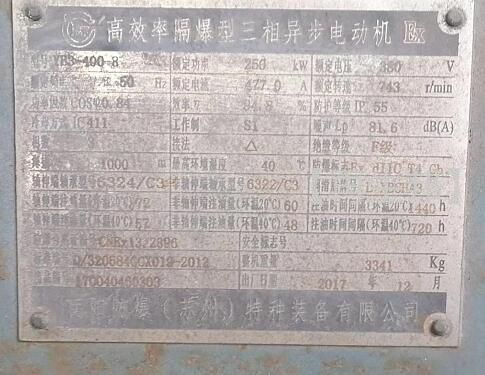 高效率隔爆型三相异步电动机 Ex
型号 YB3-400-8 额定功率 250 kW 额定电压 380 V
50 Hz 额定电流 477.0 A 额定转速 743 r/min
功率因数COSφ0.84 效率 94.8 % 防护等级IP 55
冷却方式IC411 工作制 S1 噪声 Lp 81.6 dB(A)
接法 △ 绝缘等级 F级
1000 m 最高环境温度 40 ℃ 防爆标志Ex dIIC T4 Gb
轴伸端轴承型号6324/C3 非轴伸端轴承型号6322/C3
轴伸端注油量(环温20℃) 72 非轴伸端注油量(环温20℃) 60 注油时间间隔(环温20℃) 1440 h
轴伸端注油量(环温40℃) 57 非轴伸端注油量(环温40℃) 48 注油时间间隔(环温40℃) 720 h
安全标志号
整机重量 3341 Kg
出厂日期 2017 年 12 月
防爆(苏州)特种装备有限公司